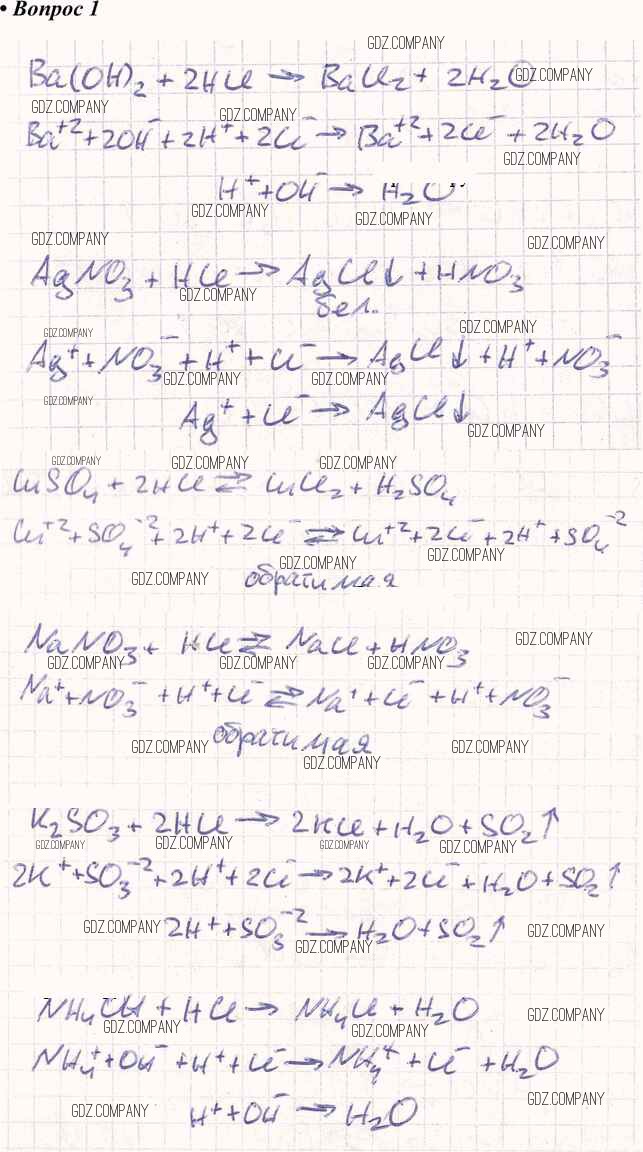 • Вопрос 1
GDZ.COMPANY
Ba(OH)₂ + 2HCl → BaCl₂ + 2H₂O GDZ.COMPANY
GDZ.COMPANY GDZ.COMPANY
Ba⁺² + 2OH⁻ + 2H⁺ + 2Cl⁻ → Ba⁺² + 2Cl⁻ + 2H₂O
GDZ.COMPANY
H⁺ + OH⁻ → H₂O
GDZ.COMPANY GDZ.COMPANY
GDZ.COMPANY GDZ.COMPANY
AgNO₃ + HCl → AgCl↓ + HNO₃
GDZ.COMPANY бел.
GDZ.COMPANY GDZ.COMPANY
Ag⁺ + NO₃⁻ + H⁺ + Cl⁻ → AgCl↓ + H⁺ + NO₃⁻
GDZ.COMPANY GDZ.COMPANY
GDZ.COMPANY
Ag⁺ + Cl⁻ → AgCl↓
GDZ.COMPANY
GDZ.COMPANY GDZ.COMPANY GDZ.COMPANY
CuSO₄ + 2HCl ⇄ CuCl₂ + H₂SO₄
Cu⁺² + SO₄⁻² + 2H⁺ + 2Cl⁻ ⇄ Cu⁺² + 2Cl⁻ + 2H⁺ + SO₄⁻²
GDZ.COMPANY GDZ.COMPANY
GDZ.COMPANY обратимая
NaNO₃ + HCl ⇄ NaCl + HNO₃ GDZ.COMPANY
GDZ.COMPANY GDZ.COMPANY GDZ.COMPANY
Na⁺ + NO₃⁻ + H⁺ + Cl⁻ ⇄ Na⁺ + Cl⁻ + H⁺ + NO₃⁻
GDZ.COMPANY обратимая GDZ.COMPANY
GDZ.COMPANY
K₂SO₃ + 2HCl → 2KCl + H₂O + SO₂↑
GDZ.COMPANY GDZ.COMPANY GDZ.COMPANY GDZ.COMPANY
2K⁺ + SO₃⁻² + 2H⁺ + 2Cl⁻ → 2K⁺ + 2Cl⁻ + H₂O + SO₂↑
GDZ.COMPANY 2H⁺ + SO₃⁻² → H₂O + SO₂↑ GDZ.COMPANY
GDZ.COMPANY
NH₄OH + HCl → NH₄Cl + H₂O GDZ.COMPANY
GDZ.COMPANY GDZ.COMPANY
NH₄⁺ + OH⁻ + H⁺ + Cl⁻ → NH₄⁺ + Cl⁻ + H₂O
GDZ.COMPANY
GDZ.COMPANY H⁺ + OH⁻ → H₂O